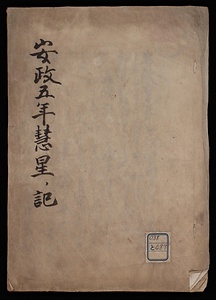 安政五年慧星ノ記